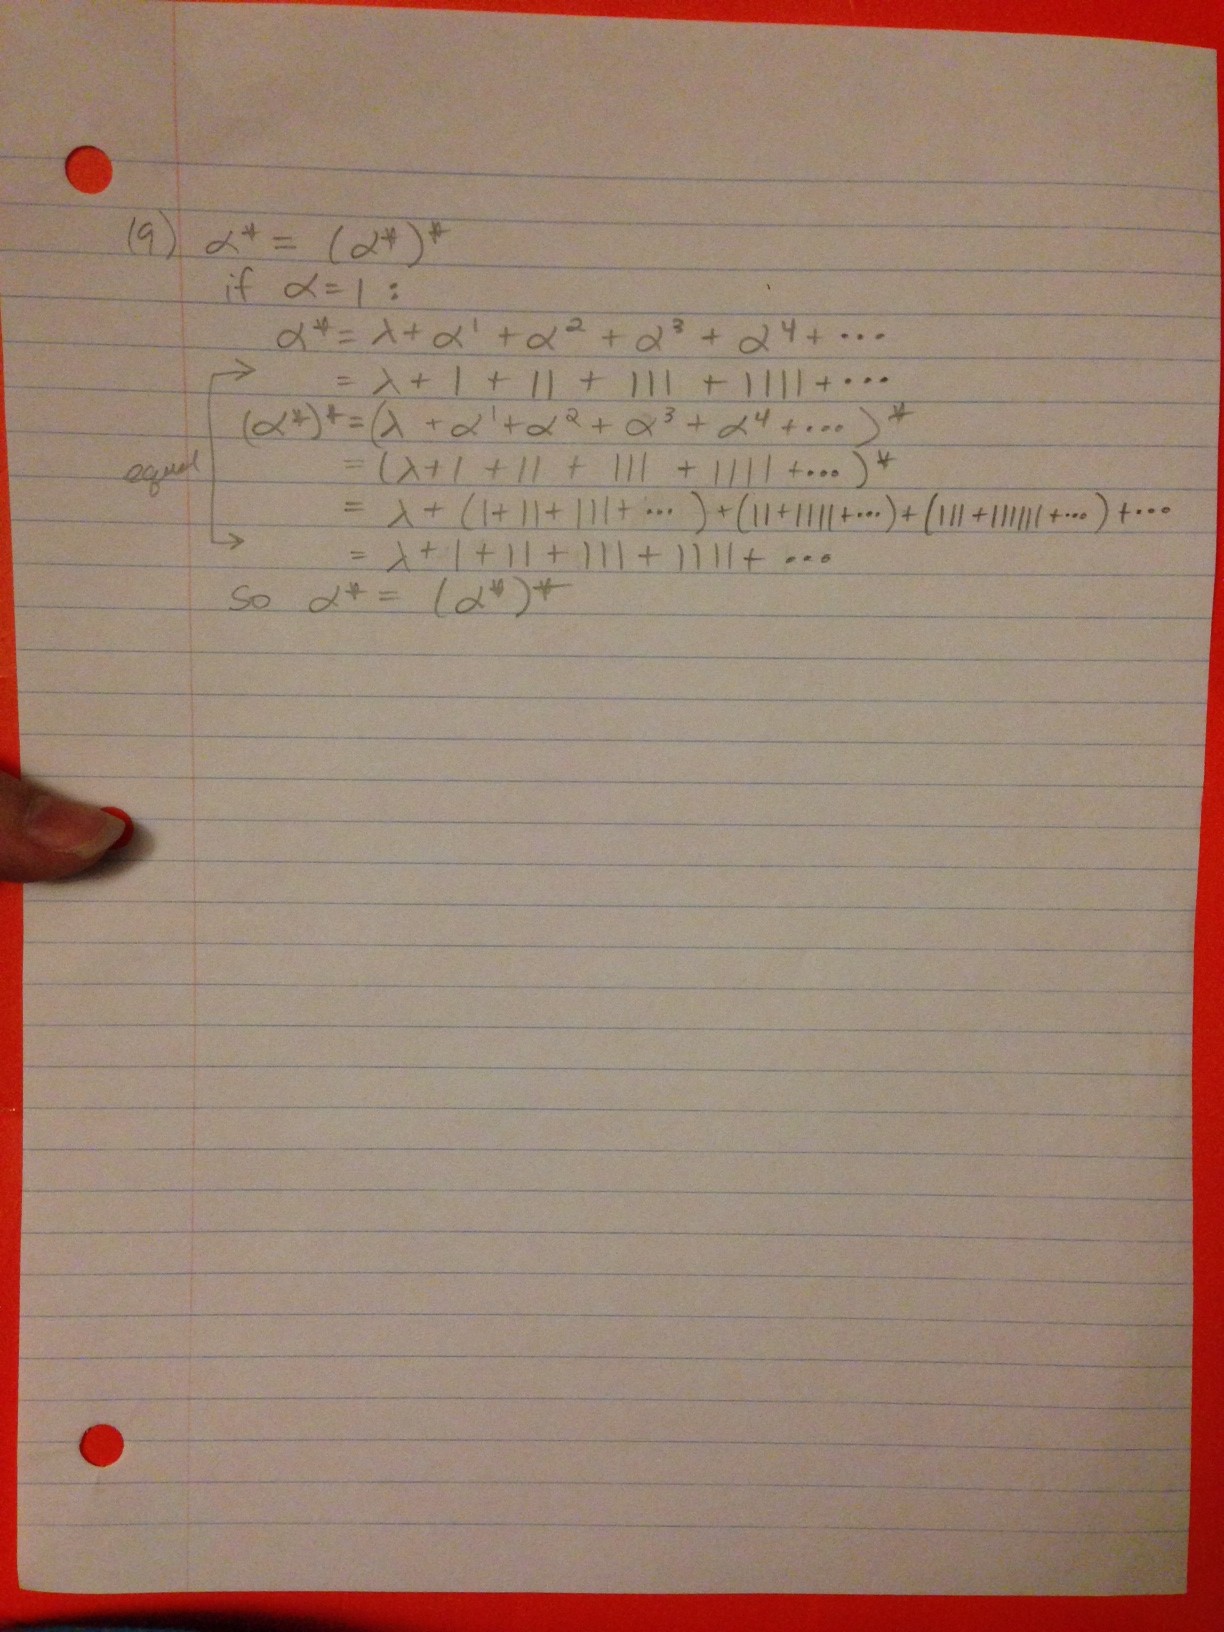 (9) α* = (α*)*
if α=1 :
α* = λ + α¹ + α² + α³ + α⁴ + ...
= λ + 1 + 11 + 111 + 1111 + ...
(α*)* = (λ + α¹ + α² + α³ + α⁴ + ... )*
equal = (λ + 1 + 11 + 111 + 1111 + ... )*
= λ + (1 + 11 + 111 + ... ) + (11 + 1111 + ...) + (111 + 111111 + ...) + ...
= λ + 1 + 11 + 111 + 1111 + ...
So α* = (α*)*